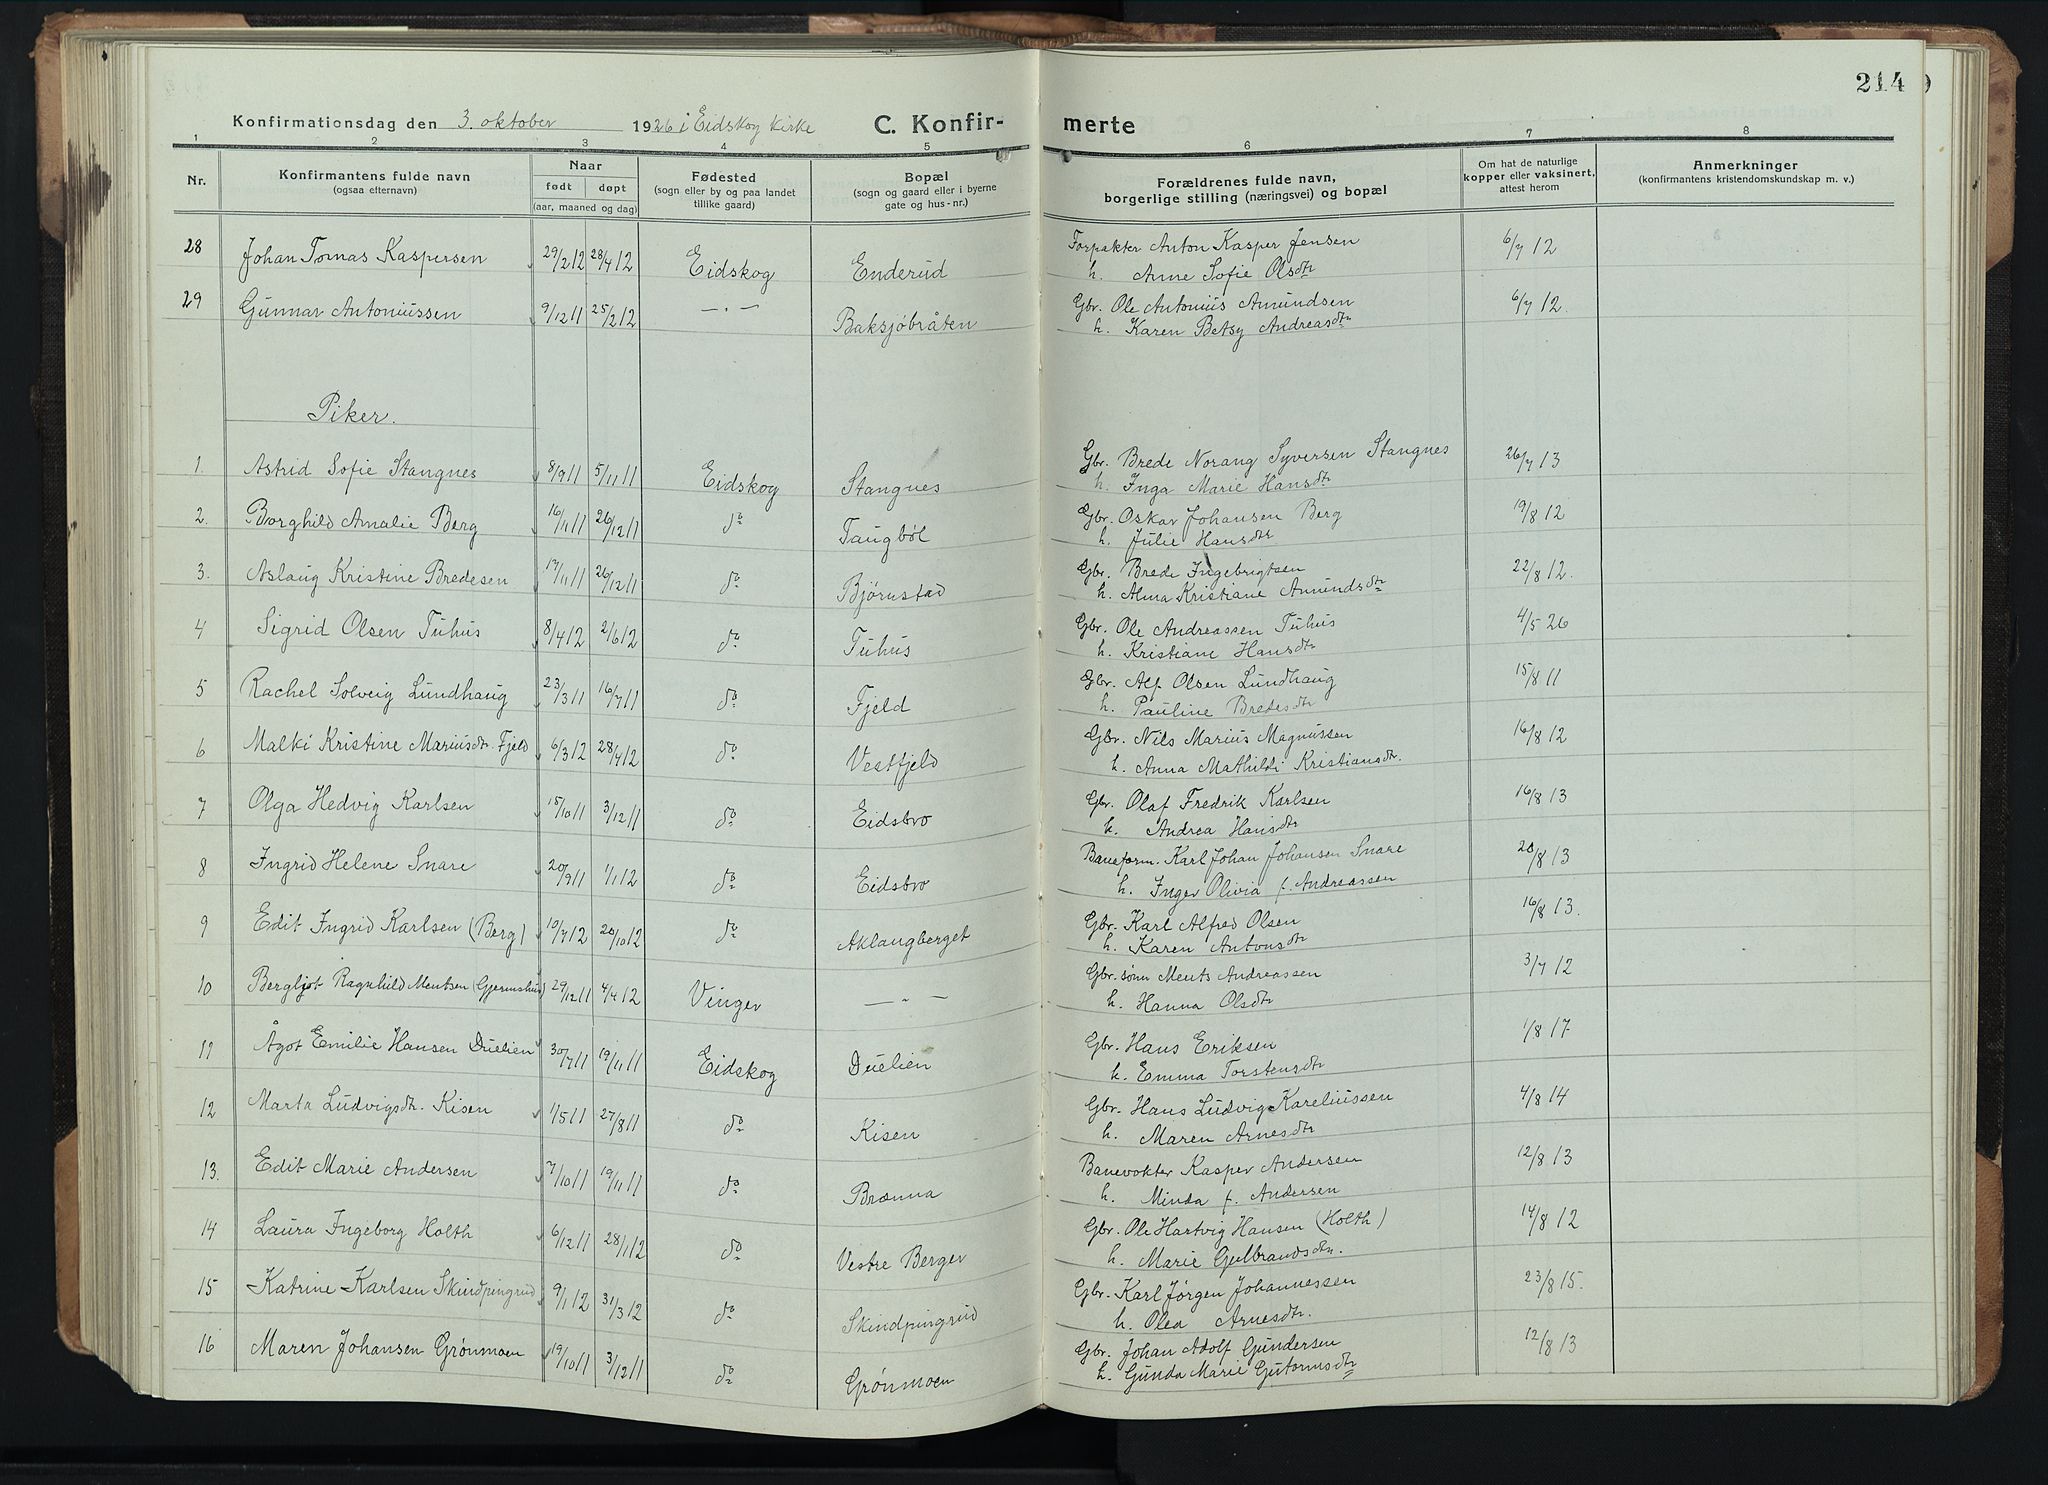 214
Konfirmationsdag den 3. oktober 1926 i Eidskog kirke C. Konfir- merte
1 2 3 4 5 6 7 8
Nr. Konfirmantens fulde navn (ogsaa efternavn) Naar født døpt (aar, maaned og dag) Fødested (sogn eller by og paa landet tillike gaard) Bopæl (sogn og gaard eller i byerne gate og hus-nr.) Forældrenes fulde navn, borgerlige stilling (næringsvei) og bopæl Om hat de naturlige kopper eller vaksinert, attest herom Anmerkninger (konfirmantens kristendomskundskap m. v.)
28 Johan Tomas Kaspersen 29/2 12 28/4 12 Eidskog Enderud Forpakter Anton Kasper Jensen 6/7 12
h. Anne Sofie Olsdtr
29 Gunnar Antoniussen 9/12 11 25/2 12 — " — Baksjøbråten Gbr. Ole Antonius Amundsen 6/7 12.
h. Karen Betsy Andreasdtr
Piker.
1. Astrid Sofie Stangnes 8/9 11 5/11 11 Eidskog Stangnes Gbr. Brede Norang Syversen Stangnes 26/7 13
h. Inga Marie Hansdtr
2. Borghild Amalie Berg 16/11 11 26/12 11 do Taugbøl Gbr. Oskar Johansen Berg 19/8 12
h. Julie Hansdtr
3. Aslaug Kristine Bredesen 17/11 11 26/12 11 do Bjørnstad Gbr. Brede Ingebrigtsen 22/8 12.
h. Alma Kristiane Amundsdtr
4 Sigrid Olsen Tuhus 8/4 12 2/6 12 do Tuhus Gbr. Ole Andreassen Tuhus 4/5 26
h. Kristiane Hansdtr
5 Rachel Solveig Lundhaug 23/3 11 16/7 11 do Fjeld Gbr. Alf Olsen Lundhaug 15/8 11
h. Pauline Bredesdtr
6 Malki Kristine Mariusdtr. Fjeld 6/3 12 28/7 12 do Vestfjeld Gbr. Nils Marius Magnussen 16/8 12
h. Anna Mathildi Kristiansdtr.
7 Olga Hedvig Karlsen 15/10 11 3/12 11 do Eidsbro Gbr. Olaf Fredrik Karlsen 16/8 13
h. Andrea Hansdtr
8 Ingrid Helene Snare 20/9 11 1/1 12 do Eidsbro Baneform. Karl Johan Johansen Snare 20/8 13
h. Inger Olivia f. Andreassen
9 Edit Ingrid Karlsen (Berg) 10/7 12 20/10 12 do Aklangberget Gbr. Karl Alfred Olsen 16/8 13.
h. Karen Antonsdtr
10 Bergljot Ragnhild Mentsen (Gjermshus) 29/12 11 4/4 12 Vinger — " — Gbr. sønn Ments Andreassen 3/7 12
h. Hanna Olsdtr
11 Ågot Emilie Hansen Duelien 30/7 11 19/11 11 Eidskog Duelien Gbr. Hans Eriksen 1/8 17
h. Emma Torstensdtr
12 Marta Ludvigsdtr. Kisen 1/5 11 27/8 11 do Kisen Gbr. Hans Ludvig Kareliussen 4/8 14
h. Maren Arnesdtr
13. Edit Marie Andersen 7/10 11 19/11 11 do Brænna Banevokter Kasper Andersen 12/8 13
h. Minda f. Andersen
14 Laura Ingeborg Holth 6/12 11 28/1 12 do Vestre Berger Gbr. Ole Hartvig Hansen (Holth) 14/8 12
h. Marie Gulbrandsdtr.
15 Katrine Karlsen Skindpingrud 9/1 12 31/3 12 do Skindpingrud Gbr. Karl Jørgen Johannessen 23/8 15.
h. Olea Arnesdtr.
16 Maren Johansen Grønmoen 19/10 11 3/12 11 do Grønmoen Gbr. Johan Adolf Gundersen 12/8 13
h. Gunda Marie Gutormsdtr